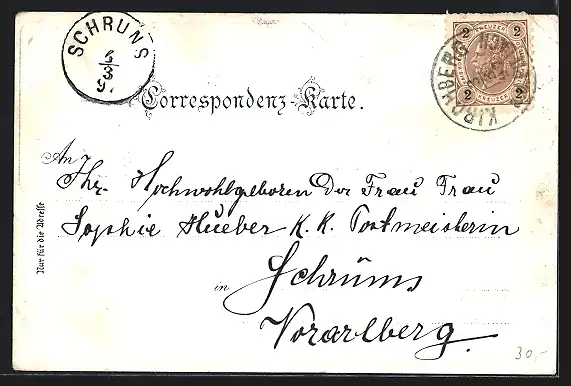 SCHRUNS
6/3
9
2 KREUZER 2
2 KREUZER 2
KIRCHBERG
Correspondenz-Karte.
An
Ihr. Hochwohlgeboren Der Frau Frau
Sophie Hueber K. K. Postmeisterin
in Schrŭns
Vorarlberg.
Nur für die Adresse
30,-